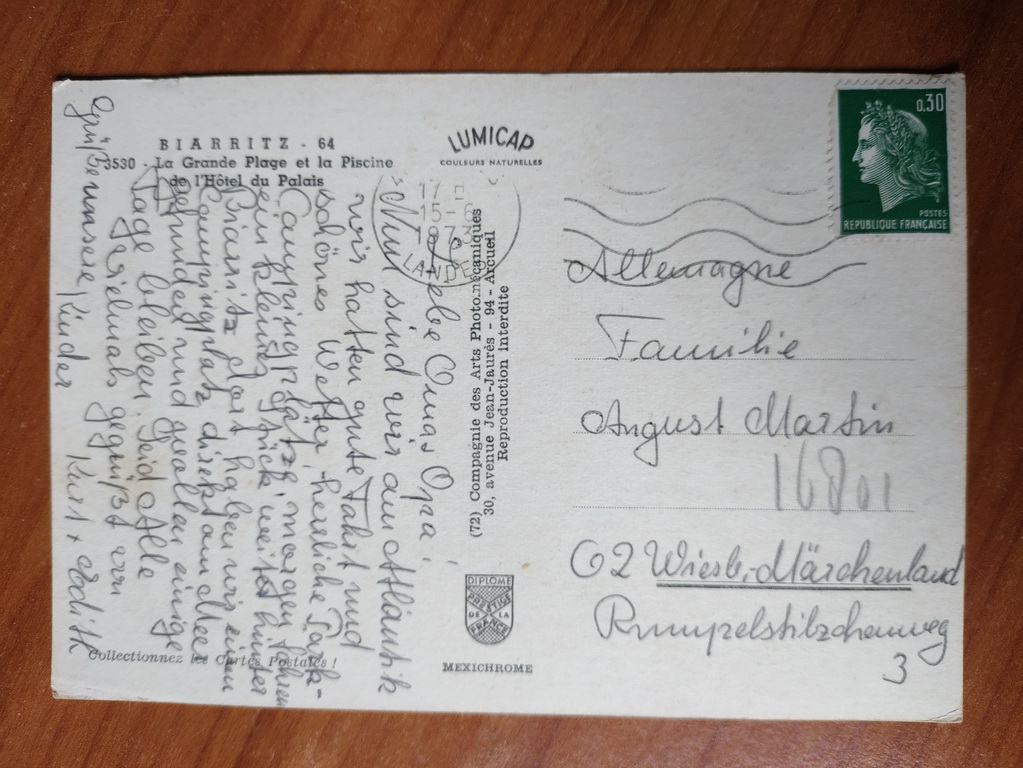 BIARRITZ - 64
3530 - La Grande Plage et la Piscine
de l'Hôtel du Palais
LUMICAP
COULEURS NATURELLES
17 -
15-6
1973
LANDES
0,30
POSTES
REPUBLIQUE FRANÇAISE
Liebe Oma, Opa,
Nun sind wir am Atlantik
wir hatten gute Fahrt und
schönes Wetter, herrliche Park-
Campingplätze, morgen fahren
ein kleines Stück weiter hinter
Biarritz dort haben wir einen
Campingplatz direkt am Meer
gefunden und wollen einige
Tage bleiben. Seid Alle
vielmals gegrüßt von
Kurt + Edith
Grüße unsere Kinder
(72) Compagnie des Arts Photomécaniques
30, avenue Jean-Jaurès - 94 - Arcueil
Reproduction interdite
DIPLOME
PRESTIGE
DE LA
FRANCE
MEXICHROME
Collectionnez les Cartes Postales !
Allemagne
Familie
August Martin
16801
62 Wiesb.-Märchenland
Rumpelstilzchenweg
3